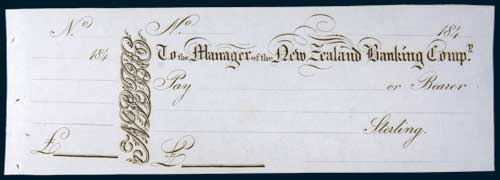 No.
184
£
No.
184
To the Manager of the New Zealand Banking Compy.
Pay or Bearer
Sterling.
£